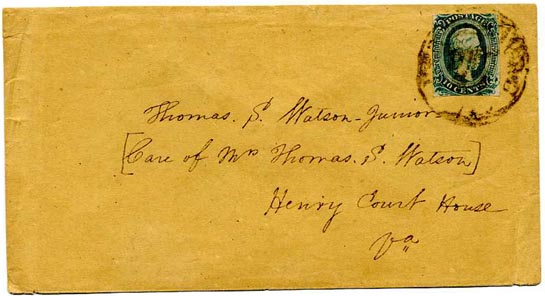 POSTAGE
10 CENTS
Thomas. S. Watson-Junior
[Care of Mrs Thomas. S. Watson]
Henry Court House
Va